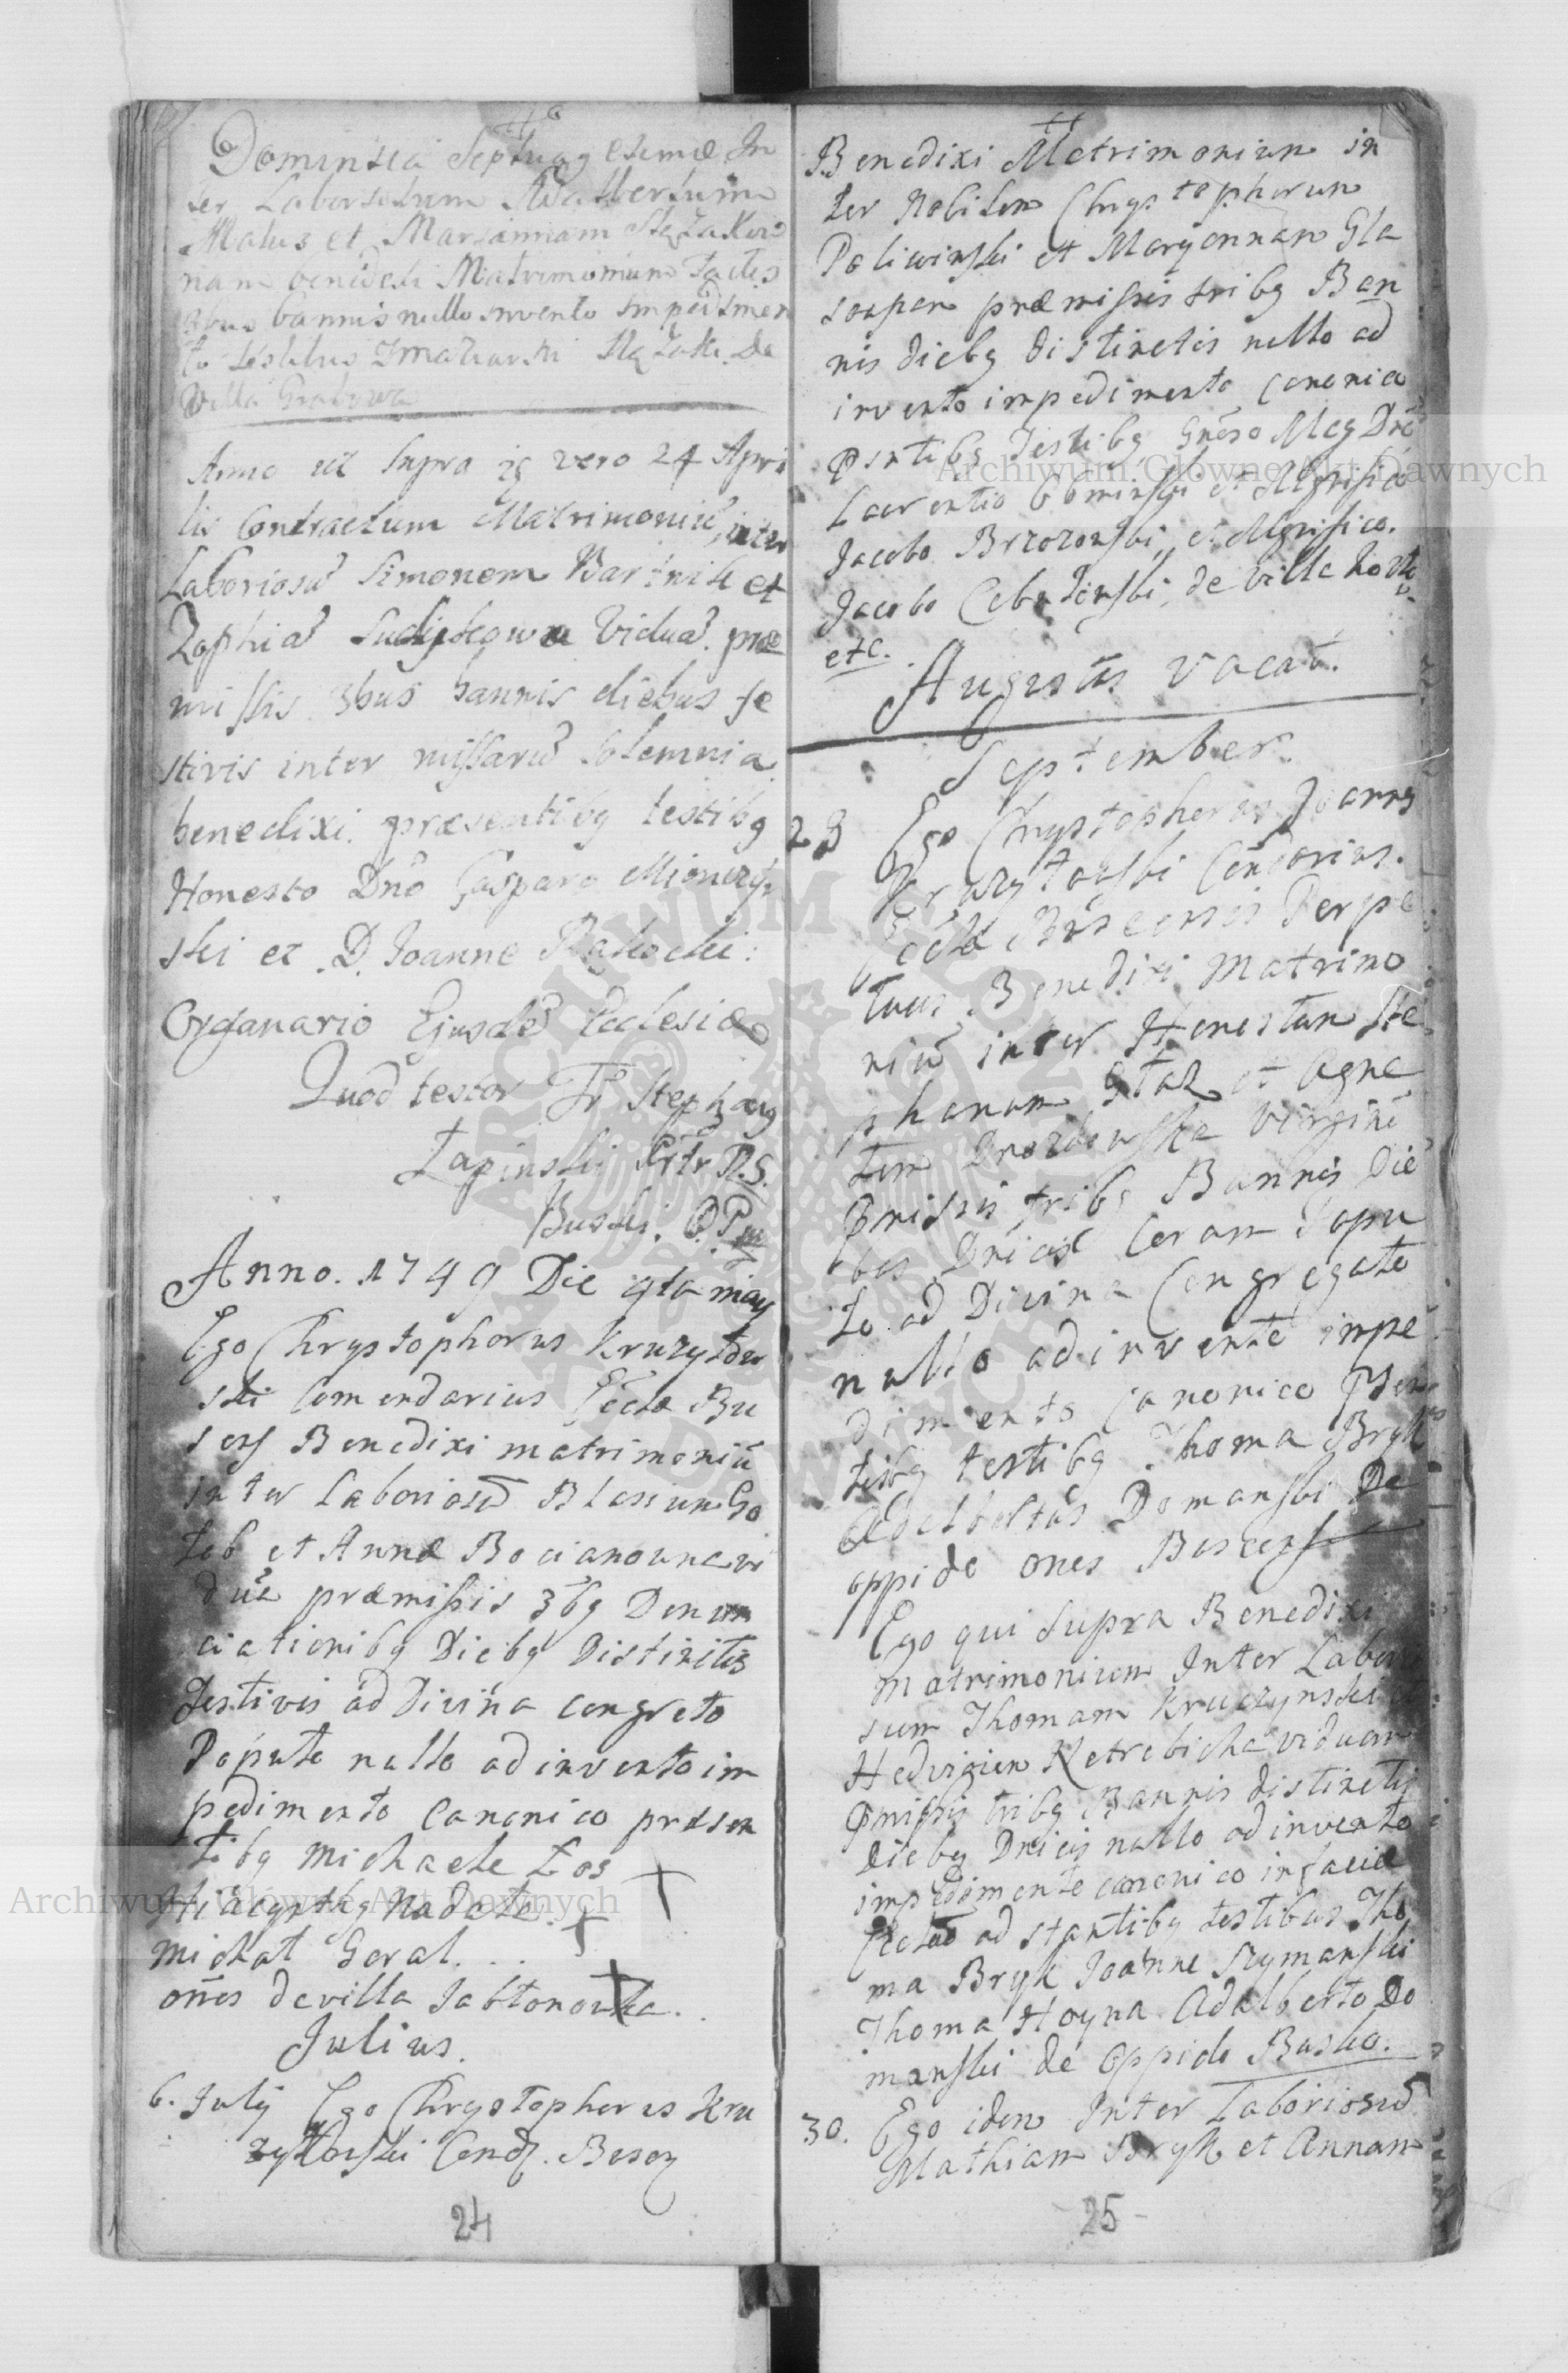 Dominica Septuagesimæ In
ter Laboriosum Adalbertum
Malus et Mariannam
nam benedixi Matrimonium factis
3bus bannis nullo invento impedimen
to testibus De
Villa Grabowa
Anno ut supra 24 Apri
lis Contractum Matrimoniū inter
Laboriosū Simonem Bartnik et
Zophiā Viduā. præ
missis 3bus bannis diebus fe
stivis inter missarū solemnia
benedixi præsentibg testibg
Honesto Dno Gasparo
ski et D. Joanne
Organario Ejusdē Ecclesiæ
Quod testor Fr Stephang
Łapinski
Buski.
Anno. 1749 Die 9ta may
Ego Chrystophorus Kruzytow
ski Comendarius Eccłæ Bu
scens Benedixi matrimoniū
inter Laboriosū Blasium Go
łeb et Annæ Bocianowna vi
duæ præmissis 3bg Denun
ciationibg Diebg Distinctis
festivis ad Divina congreto
Populo nullo adinvento im
pedimento canonico præsen
tibg Michaele Łos
Hiacynthg Nadole. +
Michał Goral...
om̄es de villa Jabłonowka.
Julius.
6. July Ego Chrystophorus Kru
zytowski Comd. Buscę
24
Benedixi Matrimonium in
ter Nobilem Chrystophorum
Poliwinski et Maryannam Gla
præmissis tribg Ban
nis diebg distinctis nullo ad
invento impedimento canonico
Psntibg Testibg Gnēso Mag Dnō
Laurentio et Mgnifico
Jacobo Brzozowski et Mgnifico.
Jacobo de villa
etc.
Augustus vacat.
September.
23 Ego Chrystophorus Joannes
Kruzytowski Comdarius.
Eccłæ Buscensis Perpe
tuus Benedixi Matrimo
niū inter Honestum Ste
phanum et Agne
tem Drozdowska virginē
Pmissis tribg Bannis Die
bus Dnicis Coram Popu
lo ad Divina Congregato
nullo adinvento impe
dimento canonico Psen
tibg testibg Thoma Bryk
Adalbertus Domanski De
oppido omes Buscens
Ego qui supra Benedixi
Matrimonium Inter Laborio
sum Thomam Kruczynski et
Hedvigim Netrebicha viduam
Pmissis tribg Bannis distinctis
diebg Dnicis nullo adinvento
impedimento canonico in facie
Eccłæ adstantibg testibus Tho
ma Bryk Joanne Szymanski
Thoma Hoyna Adalberto Do
manski de oppido Busko.
30. Ego idem Inter Laboriosū
Mathiam Bryk et Annam
25
Archiwum Główne Akt Dawnych
Archiwum Główne Akt Dawnych
ARCHIWUM GŁÓWNE AKT DAWNYCH